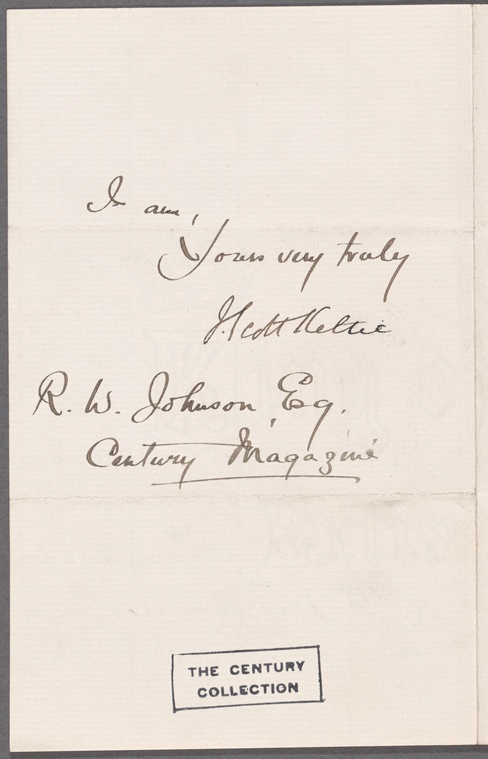 I am,
Yours very truly
J. Scott Keltie
R. W. Johnson, Eq.
Century Magazine
THE CENTURY
COLLECTION